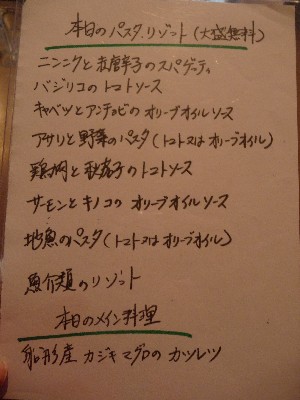 本日のパスタ・リゾット(大盛無料)
ニンニクと赤唐辛子のスパゲティ
バジリコのトマトソース
キャベツとアンチョビのオリーブオイルソース
アサリと野菜のパスタ(トマト又はオリーブオイル)
鶏肉と秋茄子のトマトソース
サーモンとキノコのオリーブオイルソース
地魚のパスタ(トマト又はオリーブオイル)
魚介類のリゾット
本日のメイン料理
船形産カジキマグロのカツレツ